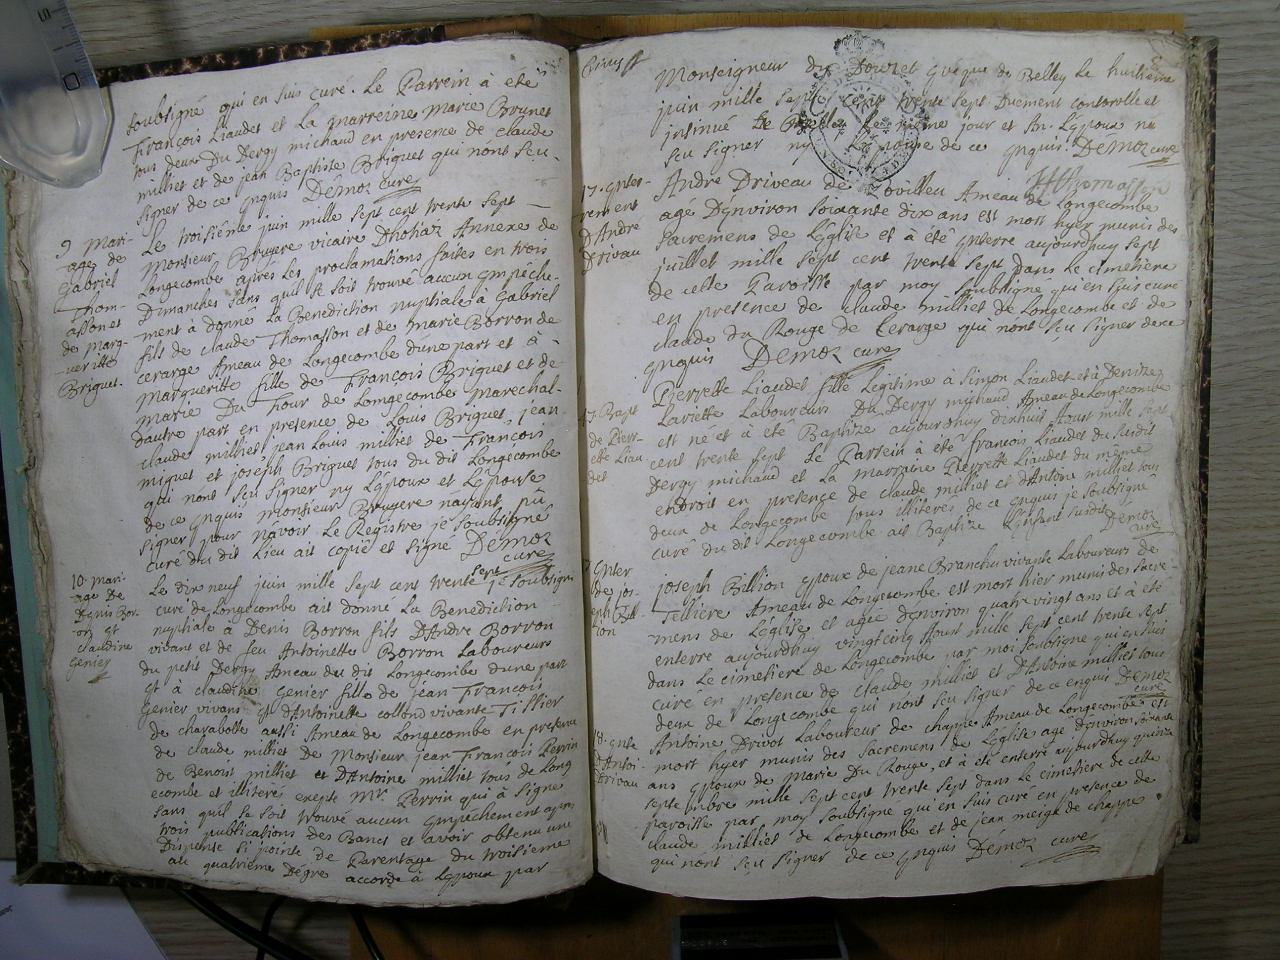 soubsigné qui en suis curé. Le Parrein à été
François Liaudet et La marreine Marie Brunet
tous deux Du Dergy michaud en presence de claude
milliet et de jean Baptiste Briguet qui nont seu
signer de ce ynquis Démoz curé
9 Mari-
age de
Gabriel
Thom-
asson et
de Marg-
ueritte
Briguet.
Le troisiéme juin mille sept cent trente sept
Monsieur Bruyere vicaire Annexe de
Longecombe apres Les proclamations faites en trois
Dimanches sans qu'il se soit trouvé aucun ympéche-
ment à donné La Benediction nuptiale à Gabriel
fils de claude Thomasson et de marie Borron de
cerarge Ameau de Longecombe d'une part et à
Margueritte fille de François Briguet et de
Marie Du four de Longecombe Marechal
dautre part en presence de Louis Briguet, jean
claude milliet, jean Louis milliet de François
miguet et joseph Briguet tous du dit Longecombe
qui nont seu signer ny L'Epoux et L'epouse
de ce ynquis Monsieur Bruyere nayant pû
signer pour n'avoir Le Registre je soubsigné
curé du dit Lieu ait copié et signé Démoz
curé
10 mari-
age De
Denis Bor-
on et
Claudine
Genier
Le dix neuf juin mille sept cent trente sept je soubsigné
curé de Longecombe ait donné La Benediction
nuptiale à Denis Borron fils D'André Borron
vivant et de feu Antoinette Borron Laboureurs
du petit Dergy Ameau du dit Longecombe dune part
et à claudine Genier fille de jean François
Genier vivant et d'Antoinette collond vivante Tillier
de charabotte aussi Ameau de Longecombe en presence
de claude milliet De Monsieur jean François Perrin
de Benoit milliet et D'Antoine milliet tous de Long
ecombe et illiteré exepté Mr. Perrin qui à signé
sans qu'il se soit trouvé aucun ympechement apres
trois publications des Bancs et avoir obtenu une
Dispense de Parentage du troisieme
au quatriéme Dégré accordé à L'Epoux par
Monseigneur du Douzet évéque de Belley Le huitiéme
juin mille sept cent trente sept Duément controllé et
jnsinué Le même jour et L'Epoux na
seu signer ny L'Epouse de ce ynquis Démoz curé
17. ynter-
rement
D'André
Driveau
André Driveau de Ameau de Longecombe
agé D'énviron soixante dix ans est mort hyer munis des
sacremens de L'église et à été ynterré aujourdhuy sept
juillet mille sept cent trente sept dans Le cimetiére
de cette Paroisse par moy soubsigné qui en suis curé
en presence de claude milliet de Longecombe et de
claude du Rouge de Cerarge qui nont seu signer de ce
ynquis Démoz curé
Bapt
de Pierr-
ette Liau
det
Pierrette Liaudet fille Legitime à Simon Liaudet et à Denize
Lariette Laboureurs Du Dergy michaud Ameau de Longecombe
est né et à été Baptizé aujourdhuy dixhuit Aoust mille sept
cent trente sept Le Parrein à été françois Liaudet du susdit
Dergy michaud et La marraine Pierrette Liaudet du même
endroit en presence de claude milliet et d'Antoine milliet tous
deux de Longecombe tous illiteres de ce ynquis je soubsigné
curé du dit Longecombe ait Baptizé L'enfant susdit Démoz
curé
ynter
de jos-
eph Bil-
lion
joseph Billion epoux de jeane Branchu vivante Laboureurs de
Telliere Ameau de Longecombe est mort hier munis des sacre-
mens de L'église et agé d'environ quatre vingt ans et à été
enterré aujourdhuy vingtcinq Aoust mille sept cent trente sept
dans Le cimetiére de Longecombe par moi soubsigné qui en suis
curé en presence de claude milliet et D'Antoine milliet tous
deux de Longecombe qui nont seu signer de ce enquis Démoz
curé
18. ynte
d'Antoi-
Driveau
Antoine Drivot Laboureur de chappe Ameau de Longecombe est
mort hyer munis des sacremens de L'église agé D'environ soixante
ans epoux de Marie Du Rouge, et à été enterré aujourdhuy quinze
septembre mille sept cent trente sept dans Le cimetiére de cette
paroisse par moy soubsigné qui en suis curé en presence de
claude milliet de Longecombe et de jean meigé de chappe
qui nont seu signer de ce ynquis Démoz curé